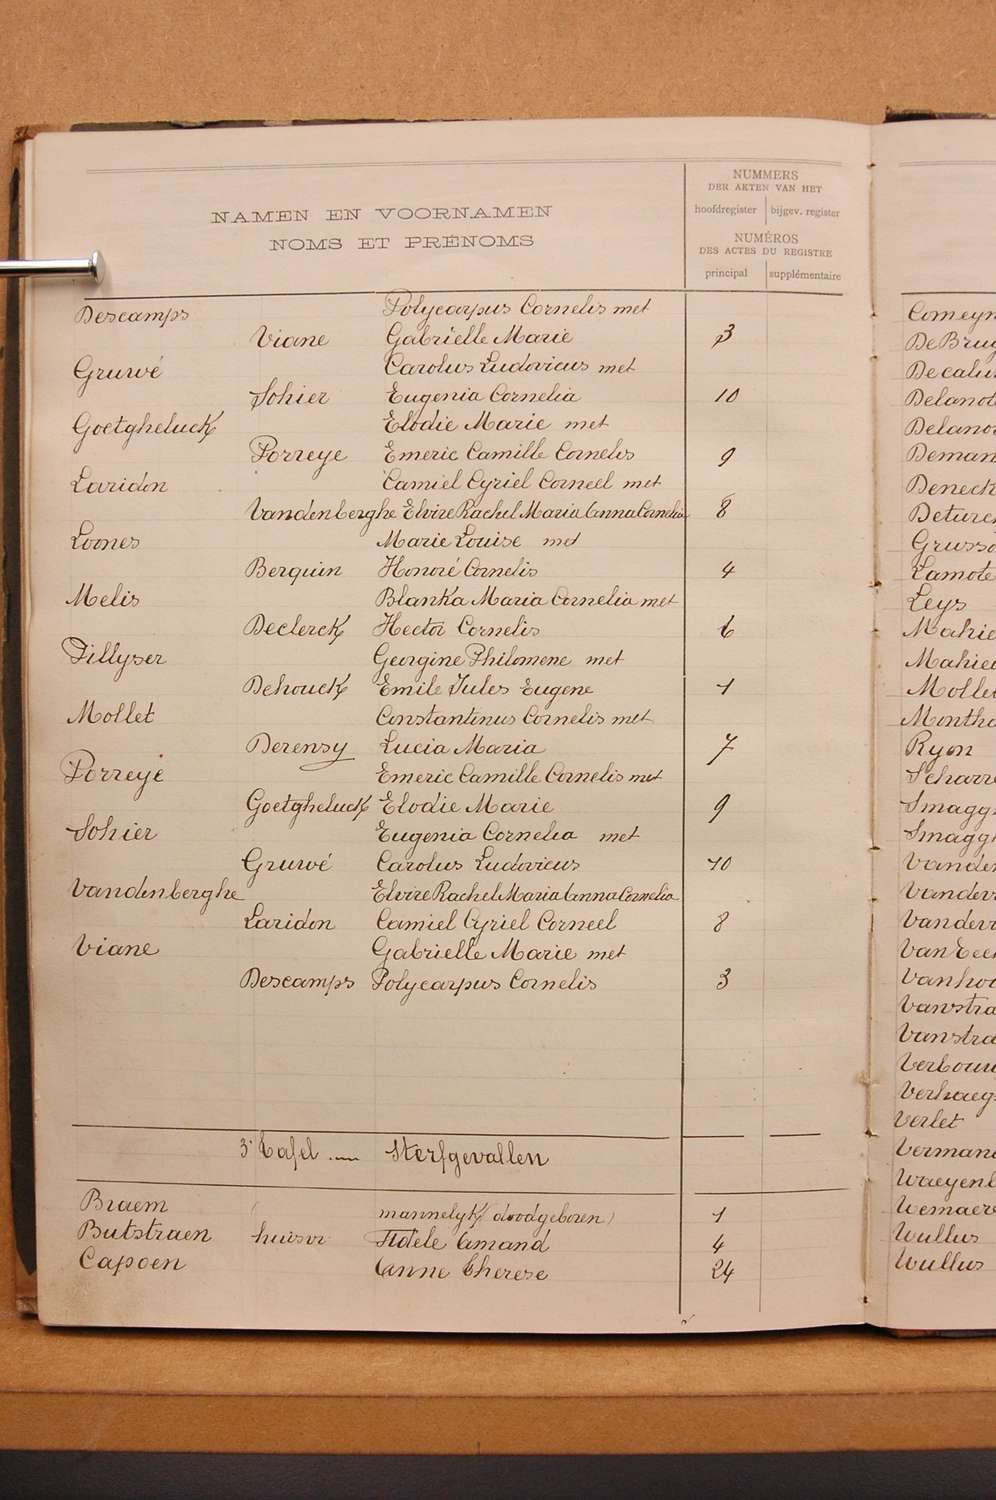 NAMEN EN VOORNAMEN
NOMS ET PRÉNOMS
NUMMERS
DER AKTEN VAN HET
hoofdregister bijgev. register
NUMÉROS
DES ACTES DU REGISTRE
principal supplémentaire
Descamps Polycarpus Cornelis met
Viane Gabrielle Marie 3
Gruwé Carolus Ludovicus met
Sohier Eugenia Cornelia 10
Goetgheluck Elodie Marie met
Porreye Emeric Camille Cornelis 9
Laridon Camiel Cyriel Corneel met
Vandenberghe Elvire Rachel Maria Anna Cornelia 8
Loones Marie Louise met
Berquin Honoré Cornelis 4
Melis Blanka Maria Cornelia met
Declerck Hector Cornelis 6
Fillyser Georgine Philomene met
Dehouck Emile Jules Eugene 1
Mollet Constantinus Cornelis met
Derensy Lucia Maria 7
Porreye Emeric Camille Cornelis met
Goetgheluck Elodie Marie 9
Sohier Eugenia Cornelia met
Gruwé Carolus Ludovicus 10
Vandenberghe Elvire Rachel Maria Anna Cornelia
Laridon Camiel Cyriel Corneel 8
Viane Gabrielle Marie met
Descamps Polycarpus Cornelis 3
3e Tafel .— Sterfgevallen
Braem ( mannelyk doodgeboren) 1
Butstraen Fidèle Amand 4
Capoen Anne Therese 24
Leys
Ryon
Verlet
Wullus
Wullus